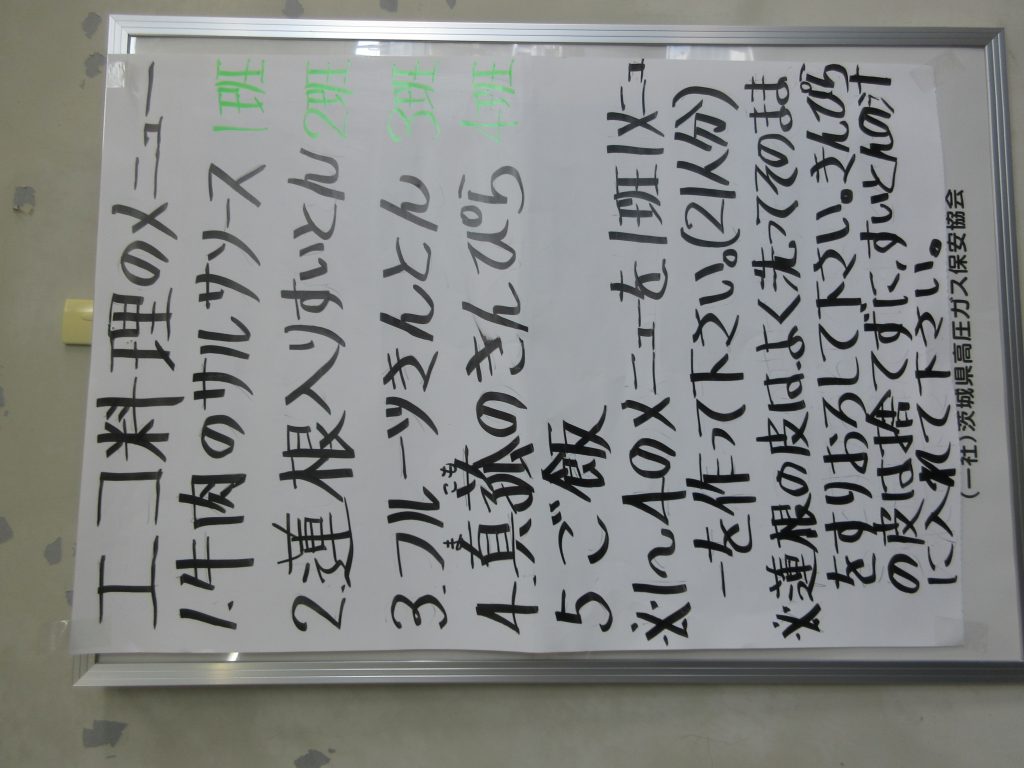 エコ料理のメニュー
1.牛肉のサルサソース 1班
2.蓮根入りすいとん 2班
3.フルーツきんとん 3班
4.真薯のきんぴら 4班
5 ご飯
※1～4のメニューを1班1メニュ
ーを作って下さい。(21人分)
※蓮根の皮はよく洗ってそのまま
をすりおろして下さい。きんぴら
の皮は捨てずに、すいとんの汁
に入れて下さい。
(一社)茨城県高圧ガス保安協会